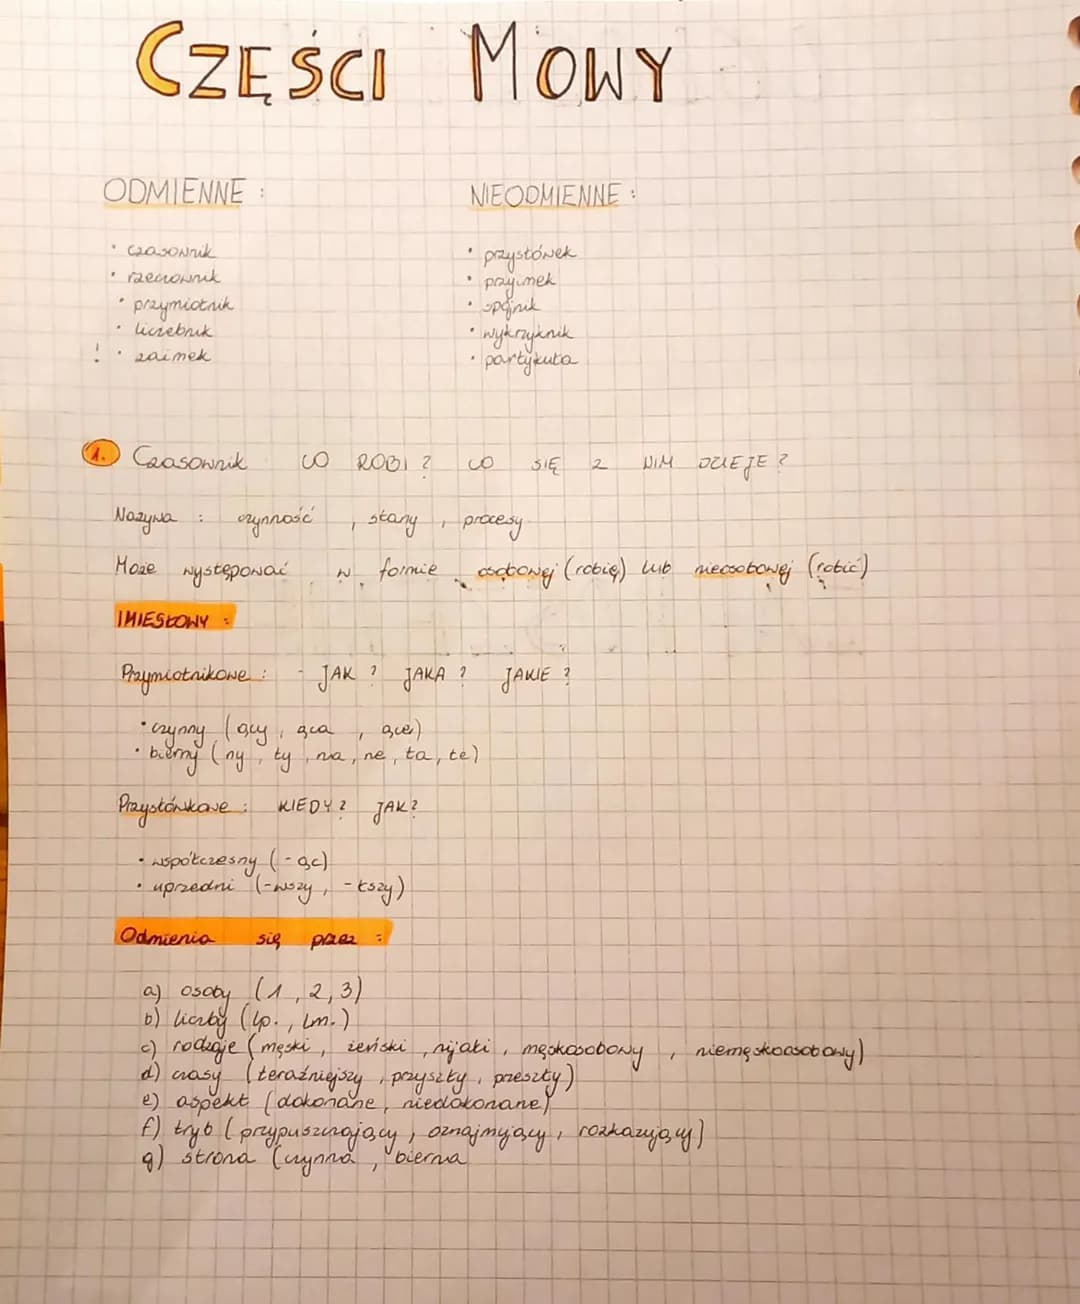 CZĘŚCI MOWY
ODMIENNE :
• czasownik
• rzeczownik
• przymiotnik
• liczebnik
! • zaimek
NIEODMIENNE :
• przysłówek
• przyimek
• spójnik
• wykrzyknik
• partykuła
1. Czasownik CO ROBI ? CO SIĘ Z NIM DZIEJE ?
Nazywa : czynność , stany , procesy
Może występować w formie osobowej (robię) lub nieosobowej (robić)
IMIESŁOWY :
Przymiotnikowe : - JAK ? JAKA ? JAKIE ?
• czynny (ący , ąca , ące)
• bierny (ny , ty , na , ne , ta , te)
Przysłówkowe : KIEDY ? JAK ?
• współczesny (-ąc)
• uprzedni (-wszy , -łszy)
Odmienia się przez :
a) osoby (1 , 2 , 3)
b) liczby (lp. , lm.)
c) rodzaje (męski , żeński , nijaki , męskosobowy , niemęskoosobowy)
d) czasy (teraźniejszy , przyszły , przeszły)
e) aspekt (dokonane , niedokonane)
f) tryb (przypuszczający , oznajmujący , rozkazujący)
g) strona (czynna , bierna